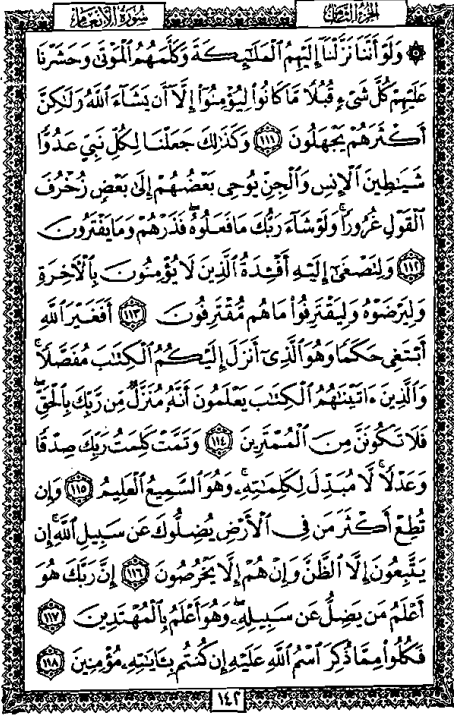 سورة الأنعام الجزء الثامن
۞ وَلَوْ أَنَّنَا نَزَّلْنَا إِلَيْهِمُ الْمَلَٰٓئِكَةَ وَكَلَّمَهُمُ الْمَوْتَىٰ وَحَشَرْنَا
عَلَيْهِمْ كُلَّ شَىْءٍ قُبُلًا مَّا كَانُوا۟ لِيُؤْمِنُوٓا۟ إِلَّآ أَن يَشَآءَ ٱللَّهُ وَلَٰكِنَّ
أَكْثَرَهُمْ يَجْهَلُونَ ١١١ وَكَذَٰلِكَ جَعَلْنَا لِكُلِّ نَبِىٍّ عَدُوًّا
شَيَٰطِينَ ٱلْإِنسِ وَٱلْجِنِّ يُوحِى بَعْضُهُمْ إِلَىٰ بَعْضٍ زُخْرُفَ
ٱلْقَوْلِ غُرُورًا ۚ وَلَوْ شَآءَ رَبُّكَ مَا فَعَلُوهُ ۖ فَذَرْهُمْ وَمَا يَفْتَرُونَ
١١٢ وَلِتَصْغَىٰٓ إِلَيْهِ أَفْـِٔدَةُ ٱلَّذِينَ لَا يُؤْمِنُونَ بِٱلْءَاخِرَةِ
وَلِيَرْضَوْهُ وَلِيَقْتَرِفُوا۟ مَا هُم مُّقْتَرِفُونَ ١١٣ أَفَغَيْرَ ٱللَّهِ
أَبْتَغِى حَكَمًا وَهُوَ ٱلَّذِىٓ أَنزَلَ إِلَيْكُمُ ٱلْكِتَٰبَ مُفَصَّلًا ۚ
وَٱلَّذِينَ ءَاتَيْنَٰهُمُ ٱلْكِتَٰبَ يَعْلَمُونَ أَنَّهُۥ مُنَزَّلٌ مِّن رَّبِّكَ بِٱلْحَقِّ ۖ
فَلَا تَكُونَنَّ مِنَ ٱلْمُمْتَرِينَ ١١٤ وَتَمَّتْ كَلِمَتُ رَبِّكَ صِدْقًا
وَعَدْلًا ۚ لَّا مُبَدِّلَ لِكَلِمَٰتِهِۦ ۚ وَهُوَ ٱلسَّمِيعُ ٱلْعَلِيمُ ١١٥ وَإِن
تُطِعْ أَكْثَرَ مَن فِى ٱلْأَرْضِ يُضِلُّوكَ عَن سَبِيلِ ٱللَّهِ ۚ إِن
يَتَّبِعُونَ إِلَّا ٱلظَّنَّ وَإِنْ هُمْ إِلَّا يَخْرُصُونَ ١١٦ إِنَّ رَبَّكَ هُوَ
أَعْلَمُ مَن يَضِلُّ عَن سَبِيلِهِۦ ۖ وَهُوَ أَعْلَمُ بِٱلْمُهْتَدِينَ ١١٧
فَكُلُوا۟ مِمَّا ذُكِرَ ٱسْمُ ٱللَّهِ عَلَيْهِ إِن كُنتُم بِـَٔايَٰتِهِۦ مُؤْمِنِينَ ١١٨
١٤٢